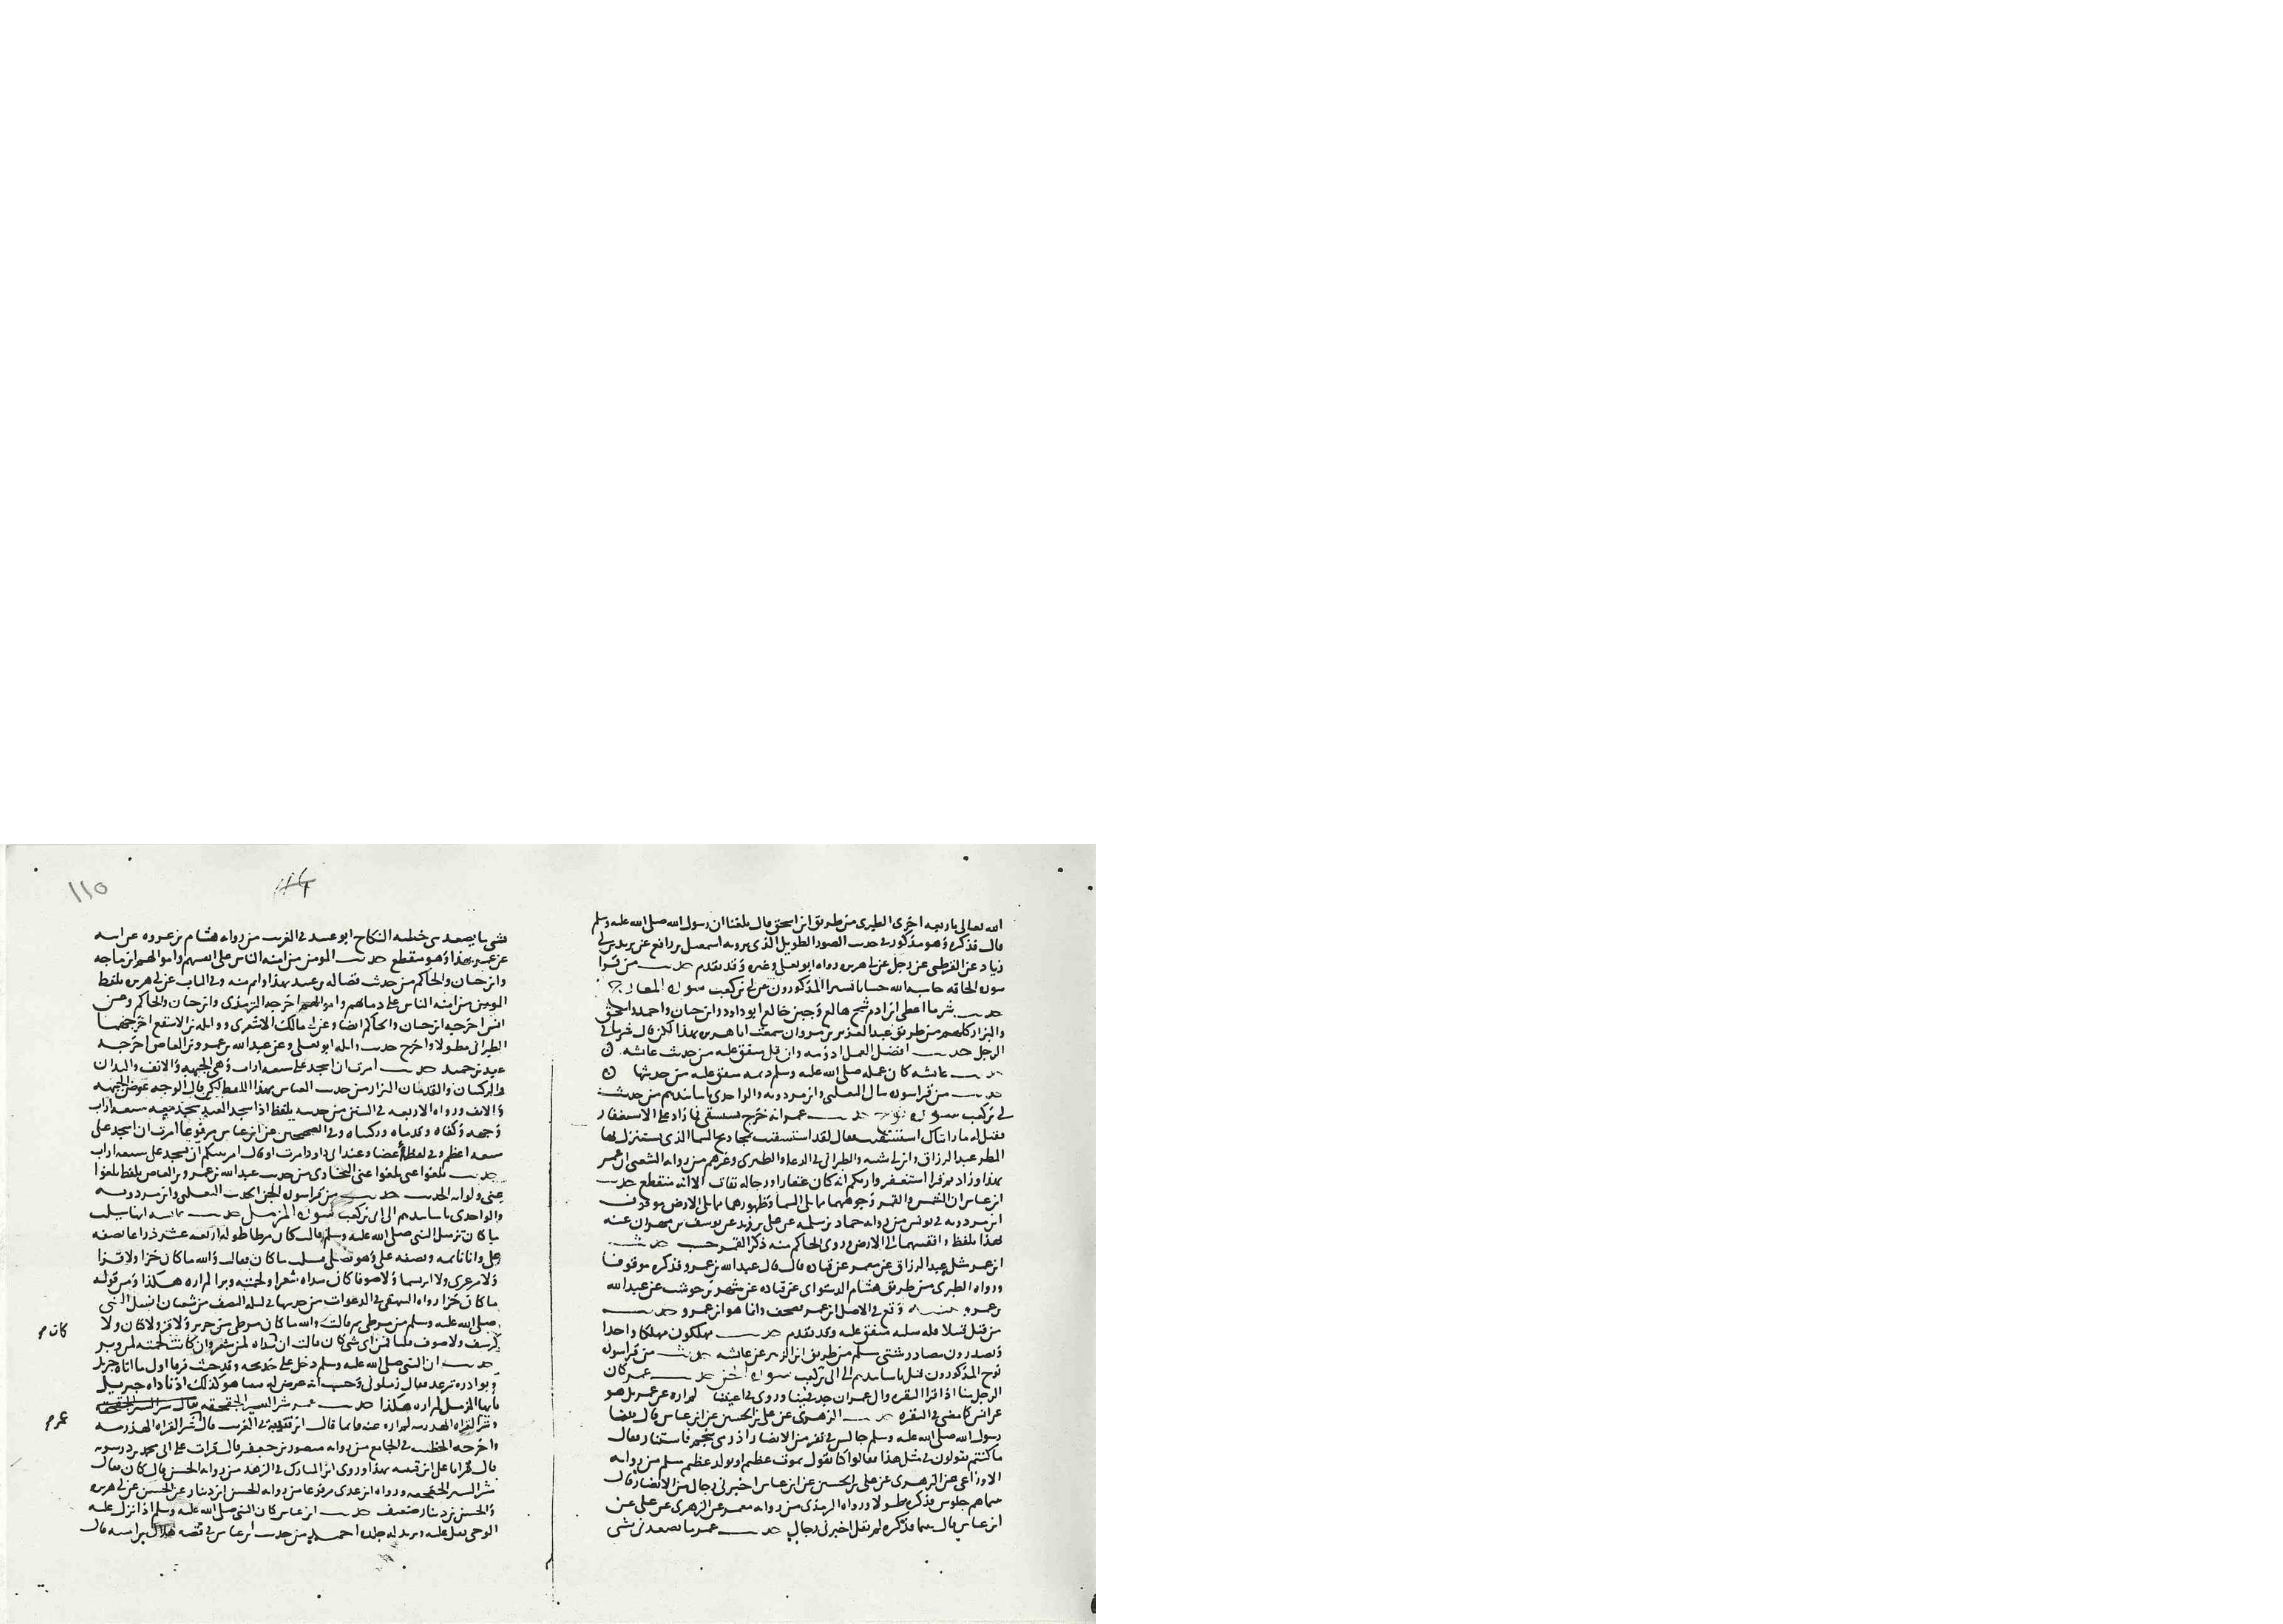 الله تعالى باربعه اخرى الطبرى من طريق ابن اسحق قال بلغنا ان رسول الله صلى الله عليه وسلم
قال فذكره وهو مذكور فى حديث الصور الطويل الذى يرويه اسمعيل بن رافع عن يزيد بن ابى
زياد عن القرظى عن رجل عن ابى هريره رواه ابو يعلى وغيره وقد تقدم حديث من قرا
سوره الحاقه حاسبه الله حسابا يسيرا المذكورون عن ابى بن كعب سوره المعارج
حديث شر ما اعطى ابن ادم شح هالع وجبن خالع ابو داود وابن حبان واحمد واسحق
والبزار كلهم من طريق عبد العزيز بن مروان سمعت ابا هريره بهذا لكن قال شر ما فى
الرجل حديث افضل العمل ادومه وان قل متفق عليه من حديث عائشه
حديث عائشه كان عمله صلى الله عليه وسلم ديمه متفق عليه من حديثها
حديث من قرا سوره سال الثعلبى وابن مردويه والواحدى باسانيدهم من حديث
ابى بن كعب سوره نوح حديث عمر انه خرج يستسقى فما زاد على الاستغفار
فقيل له ما رايناك استسقيت فقال لقد استسقيت بمجاديح السما الذى يستنزل بها
المطر عبد الرزاق وابن ابى شيبه والطبرانى فى الدعا والطبرى وغيرهم من روايه الشعبى ان عمر
بهذا وزاد ثم قرا استغفروا ربكم انه كان غفارا ورجاله ثقات الا انه منقطع حديث
ابن عباس ان الشمس والقمر وجوههما مما يلى السما وظهورهما مما يلى الارض موقوف
ابن مردويه فى يونس من روايه حماد بن سلمه عن على بن زيد عن يوسف بن مهران عنه
بهذا بلفظ واقفيتهما الى الارض وروى الحاكم منه ذكر القمر حسب حديث
ابن عمر مثله عبد الرزاق عن معمر عن قتاده قال قال عبد الله بن عمرو فذكره موقوفا
ورواه الطبرى من طريق هشام الدستواى عن قتاده عن شهر بن حوشب عن عبد الله
بن عمرو وقع فى الاصل ابن عمر تصحف وانما هو ابن عمرو حديث
من قتل قتيلا فله سلبه متفق عليه وقد تقدم حديث يهلكون مهلكا واحدا
ويصدرون مصادر شتى مسلم من طريق ابن الزبير عن عائشه حديث من قرا سوره
نوح المذكورون قبل باسانيدهم الى ابى بن كعب سوره الجن حديث عمر كان
الرجل منا اذا قرا البقره وال عمران جد فينا وروى فى اعيننا لم اره عن عمر بل هو
عن انس كما مضى فى البقره حديث الزهرى عن على بن الحسين عن ابن عباس قال بينا
رسول الله صلى الله عليه وسلم جالس فى نفر من الانصار اذ رمى بنجم فاستنار فقال
ما كنتم تقولون فى مثل هذا فقالوا كنا نقول يموت عظيم او يولد عظيم مسلم من روايه
الاوزاعى عن الزهرى عن على بن الحسين عن ابن عباس اخبرنى رجال من الانصار قال
بينما هم جلوس فذكره مطولا ورواه الترمذى من روايه معمر عن الزهرى عن على عن
ابن عباس قال بينما فذكره لم يقل اخبرنى رجال حديث عمر ما تصعدنى شى
١١٥
شى ما يصعدنى خطبه النكاح ابو عبيد فى الغريب من روايه هشام بن عروه عن ابيه
عن عمر بهذا وهو منقطع حديث المومن من امنه الناس على انفسهم واموالهم ابن ماجه
وابن حبان والحاكم من حديث فضاله بن عبيد بهذا واتم منه وفى الباب عن ابى هريره بلفظ
المومن من امنه الناس على دمائهم واموالهم اخرجه الترمذى وابن حبان والحاكم وعن
انس اخرجه ابن حبان والحاكم ايضا وعن ابى مالك الاشعرى وواثله بن الاسقع اخرجهما
الطبرانى مطولا واخرج حديث واثله ابو يعلى وعن عبد الله بن عمرو بن العاص اخرجه
عبد بن حميد حديث امرت ان اسجد على سبعه اراب وهى الجبهه والانف واليدان
والركبتان والقدمان البزار من حديث العباس بهذا اللفظ لكن قال الوجه عوض الجبهه
والانف ورواه الاربعه فى السنن من حديثه بلفظ اذا سجد العبد سجد معه سبعه اراب
وجهه وكفاه وقدماه وركبتاه وفى الصحيحين عن ابن عباس مرفوعا امرت ان اسجد على
سبعه اعظم وفى لفظ اعضا وعند ابى داود امرت او قال امر نبيكم ان يسجد على سبعه اراب
حديث بلغوا عنى بلغوا عنى البخارى من حديث عبد الله بن عمرو بن العاص بلفظ بلغوا
عنى ولو ايه الحديث حديث من قرا سوره الجن الحديث الثعلبى وابن مردويه
والواحدى باسانيدهم الى ابى بن كعب سوره المزمل حديث عائشه انها سيلت
ما كان تزميل النبى صلى الله عليه وسلم قالت كان مرطا طوله اربعه عشر ذراعا نصفه
على وانا نايمه ونصفه عليه وهو يصلى فسيلت ما كان فقالت والله ما كان خزا ولا قزا
ولا مرعزى ولا ابريسما ولا صوفا كان سداه شعرا ولحمته وبرا لم اره هكذا ومن قوله
ما كان خزا رواه البيهقى فى الدعوات من حديثها فى ليله النصف من شعبان انسل النبى
صلى الله عليه وسلم من مرطى ثم قالت والله ما كان مرطى من حرير ولا قز ولا كتان ولا
كرسف ولا صوف قلنا فمن اى شى كان قالت ان سداه لمن شعر وان كانت لحمته لمن وبر
كان
حديث ان النبى صلى الله عليه وسلم دخل على خديجه وقد جئث فرقا اول ما اتاه جبريل
وبوادره ترعد فقال زملونى وحسب انه عرض له فبينما هو كذلك اذ ناداه جبريل
يايها المزمل لم اره هكذا حديث عمر شر السير الحقحقه
عمر
وشر القراه الهذرمه لم اره عنه قائما قال ابن قتيبه فى الغريب قال شر القراه الهذرمه
واخرجه الخطيب فى الجامع من روايه منصور بن جعفر قال قرات على ابى محمد بن درستويه
قال قرانا على ابن قتيبه بهذا وروى ابن المبارك فى الزهد من روايه الحسن قال كان يقال
شر السير الحقحقه ورواه ابن عدى مرفوعا من روايه الحسن بن دينار عن الحسن عن ابى هريره
والحسن بن دينار ضعيف حديث ابن عباس كان النبى صلى الله عليه وسلم اذا نزل عليه
الوحى ثقل عليه وتربد له جلده احمد من حديث ابن عباس فى قصه هلال بن اميه قال